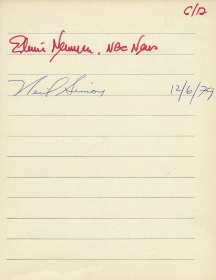 C/12
Edwin Newman, NBC News
Neil Simon 12/6/79